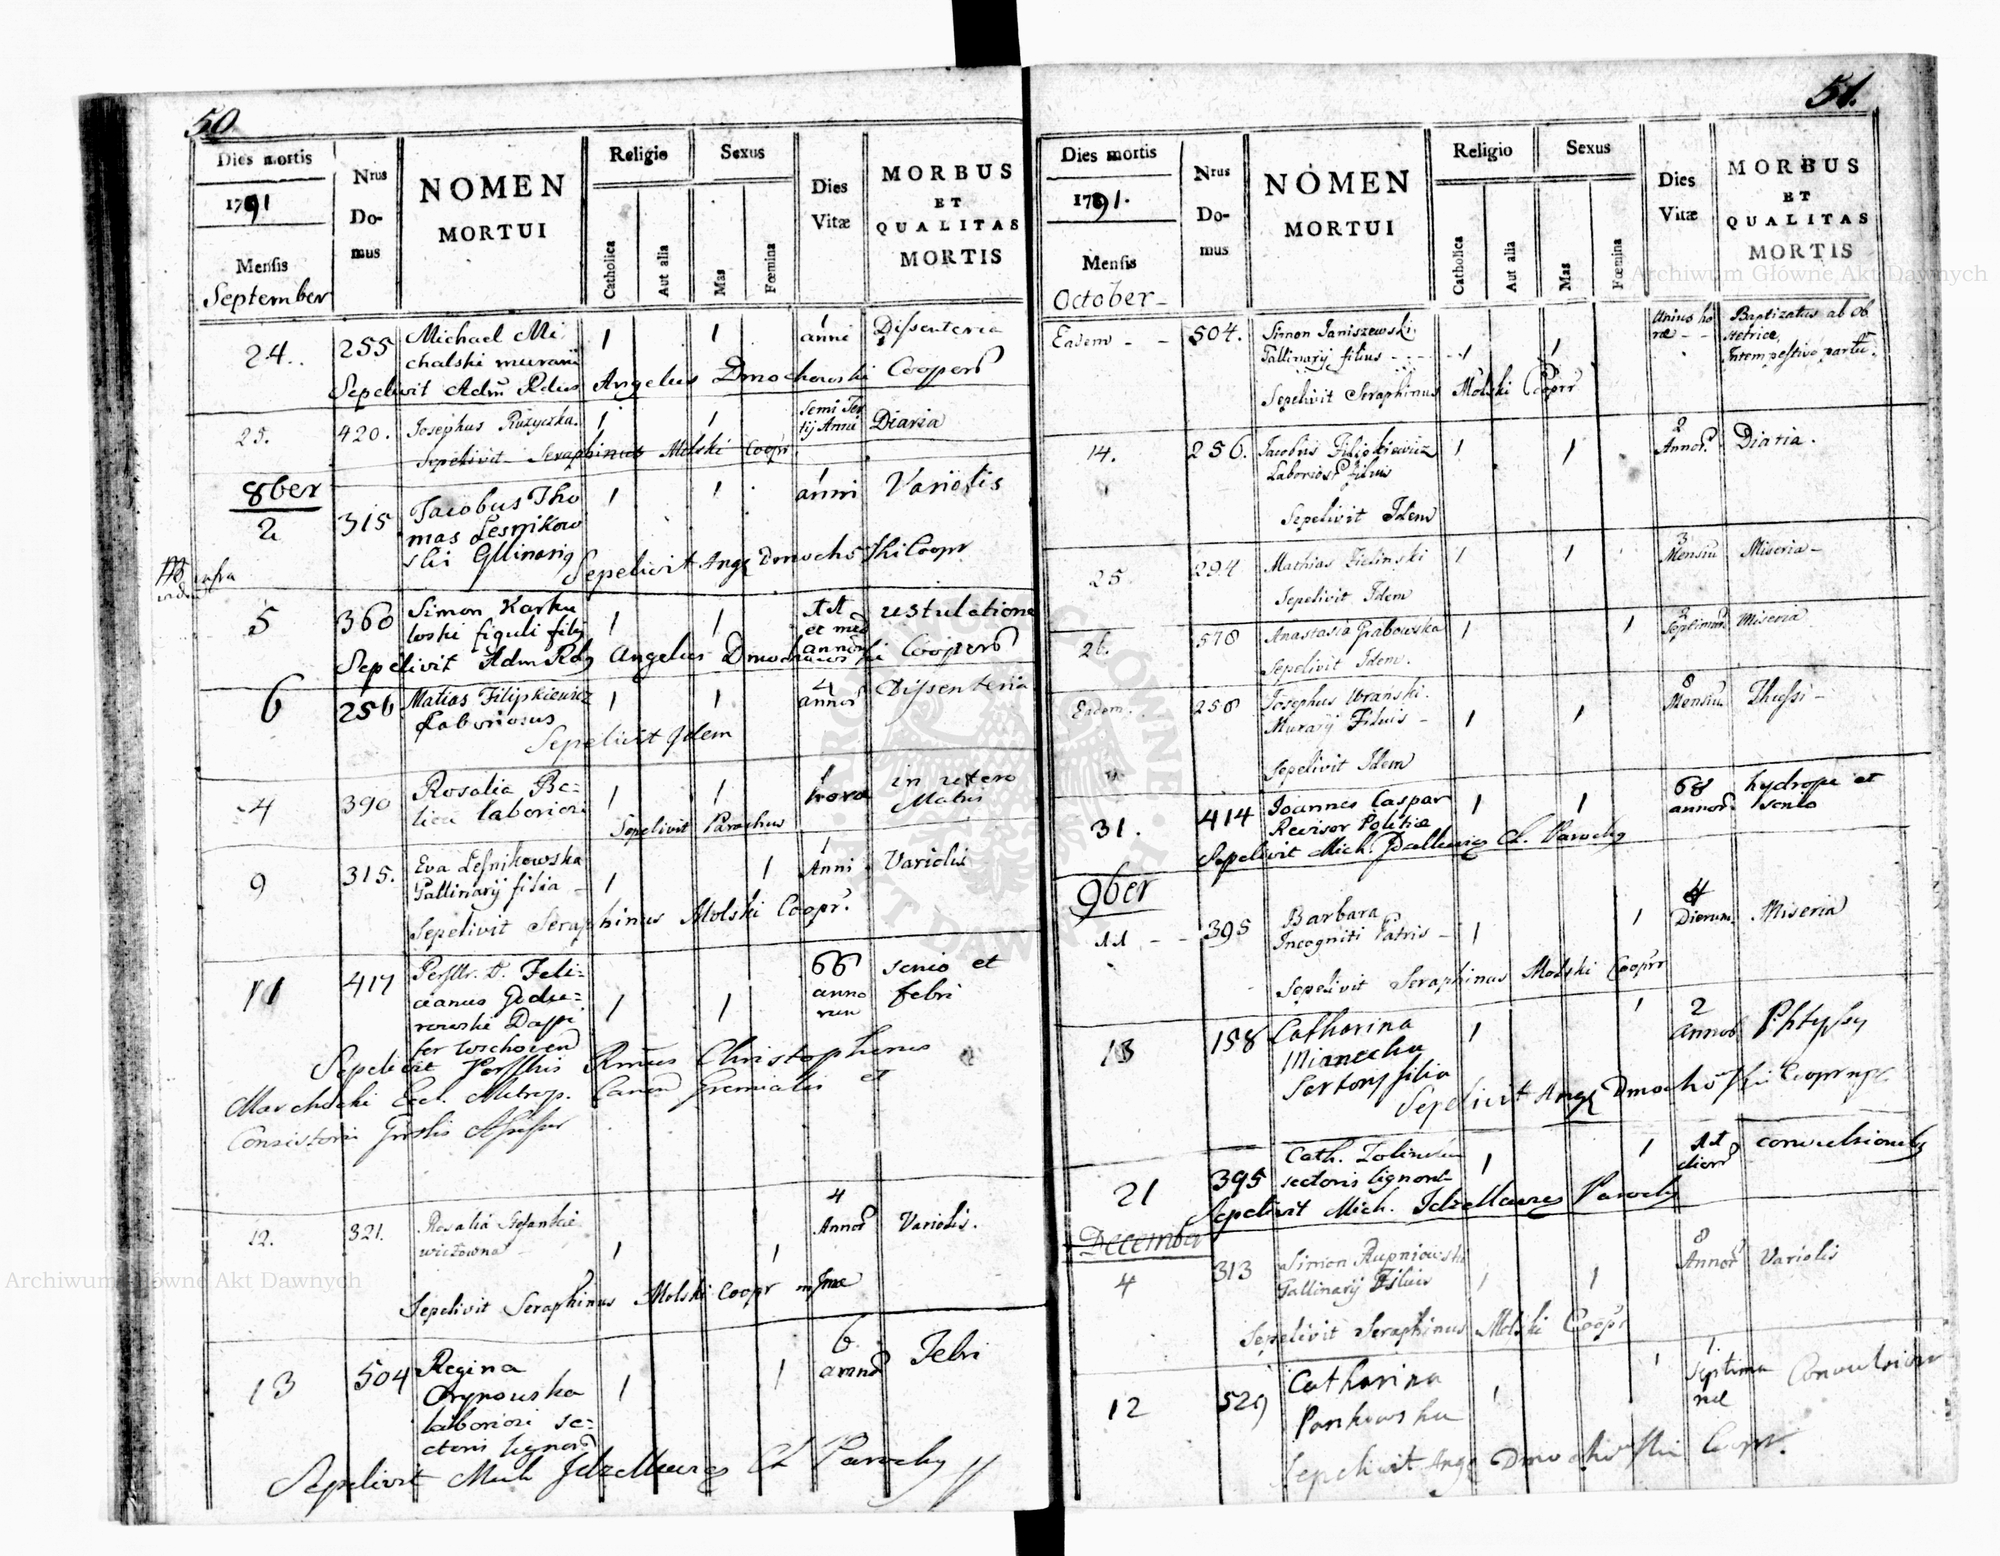 50
Dies mortis
1791
Mensis
September
Nrus
Do-
mus
NOMEN
MORTUI
Religio
Catholica
Aut alia
Sexus
Mas
Fœmina
Dies
Vitæ
MORBUS
ET
QUALITAS
MORTIS
24. 255 Michael Mi 1 1 1 Dissenteria
chalski murarii anni
Sepelivit Adm Rdus Angelus Dmochowski Cooper
25. 420. Josephus Ruzyczka 1 1 Semi Ter Diaria
tij Anni
Sepelivit Seraphinus Molski Coopr
8ber
2 315 Jacobus Tho 1 1 anni Variolis
mas Lesnikow
ski Gllinarij
Sepelivit Ang Dmochowski Coopr
infra
5 360 Simon Karku 1 1 11 ustulatione
loski figuli filij et med
annor
Sepelivit Adm Rdus Angelus Dmochowski Cooper
6 256 Matias Filipkiewicz 1 1 4 Dissenteria
Laboriosus annor
Sepelivit Idem
4 390 Rosalia Be= 1 1 1 in utero
hora Matris
Sepelivit Parochus
9 315. Eva Lesnikowska 1 1 1 Variolis
Gallinarij filia Anni
Sepelivit Seraphinus Molski Coopr.
11 417 Perillr. D. Feli= 1 1 66 senio et
cianus Godu= anno febri
rowski Dappi rum
fer
Sepelivit Perillris Rmus Christophorus
Marchocki Eccl. Metrop. Canon Gremialis et
Consistorii Gnrlis Assessor
12. 321. Rosalia Stefankie 1 1 4 Variolis.
wiczowna Annor
Sepelivit Seraphinus Molski Coopr mppa
13 504 Regina 1 1 6 Febri
annor
laboriosi se=
ctoris lignor
Sepelivit Mich Parochus
51.
Dies mortis
1791.
Mensis
October
Nrus
Do-
mus
NOMEN
MORTUI
Religio
Catholica
Aut alia
Sexus
Mas
Fœmina
Dies
Vitæ
MORBUS
ET
QUALITAS
MORTIS
Eadem 504. Simon Janiszewski Unius ho Baptizatus ab ob
Gallinarij filius 1 1 ræ stetrice,
Intempestivo partu.
Sepelivit Seraphinus Molski Coopr
14. 256. Jacobus Filipkiewicz 1 1 2 Diaria.
Laboriosi filius Annor.
Sepelivit Idem
25 294 Mathias Zielinski 1 1 3 Miseria
Mensiu
Sepelivit Idem
26. 578 Anastasia Grabowska 1 1 2 Miseria
Septiman
Sepelivit Idem.
Eadem 258 Josephus Wranski. 8 Thussi
Murarij Filius 1 1 Mensiu
Sepelivit Idem
31. 414 Joannes Caspar 1 1 68 hydrope et
Revisor Politiæ annor. senio
Sepelivit Mich. Parochus
9ber
11 395 Barbara 4 Miseria
Incogniti Patris 1 1 Dierum
Sepelivit Seraphinus Molski Coopr
13 158 Catharina 1 1 2 Phtypsy
Mianecka annor
Sartoris filia
Sepelivit Ang Dmochowski Coopr mp
21 395 Cath. Zolinska 1 1 11 convulsionibus
sectoris lignor dier
Sepelivit Mich. Parochus
December
4 313 Simon Rupniowski 8 Variolis
Gallinarij Filius 1 1 Annor
Sepelivit Seraphinus Molski Coopr
12 529 Catharina 1 1 1 Convulsion
Pankowska septima
næ
Sepelivit Ang Dmochowski Coopr.
Archiwum Główne Akt Dawnych
Archiwum Główne Akt Dawnych
ARCHIWUM GŁÓWNE AKT DAWNYCH